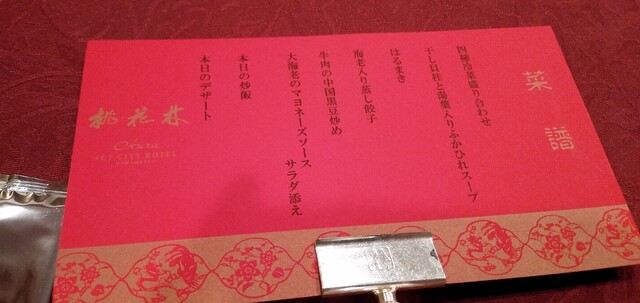 菜譜
四種冷菜盛り合わせ
干し貝柱と湯葉入りふかひれスープ
はるまき
海老入り蒸し餃子
牛肉の中国黒豆炒め
大海老のマヨネーズソース
サラダ添え
本日の炒飯
本日のデザート
桃花林
Okura
ACT CITY HOTEL
HAMAMATSU